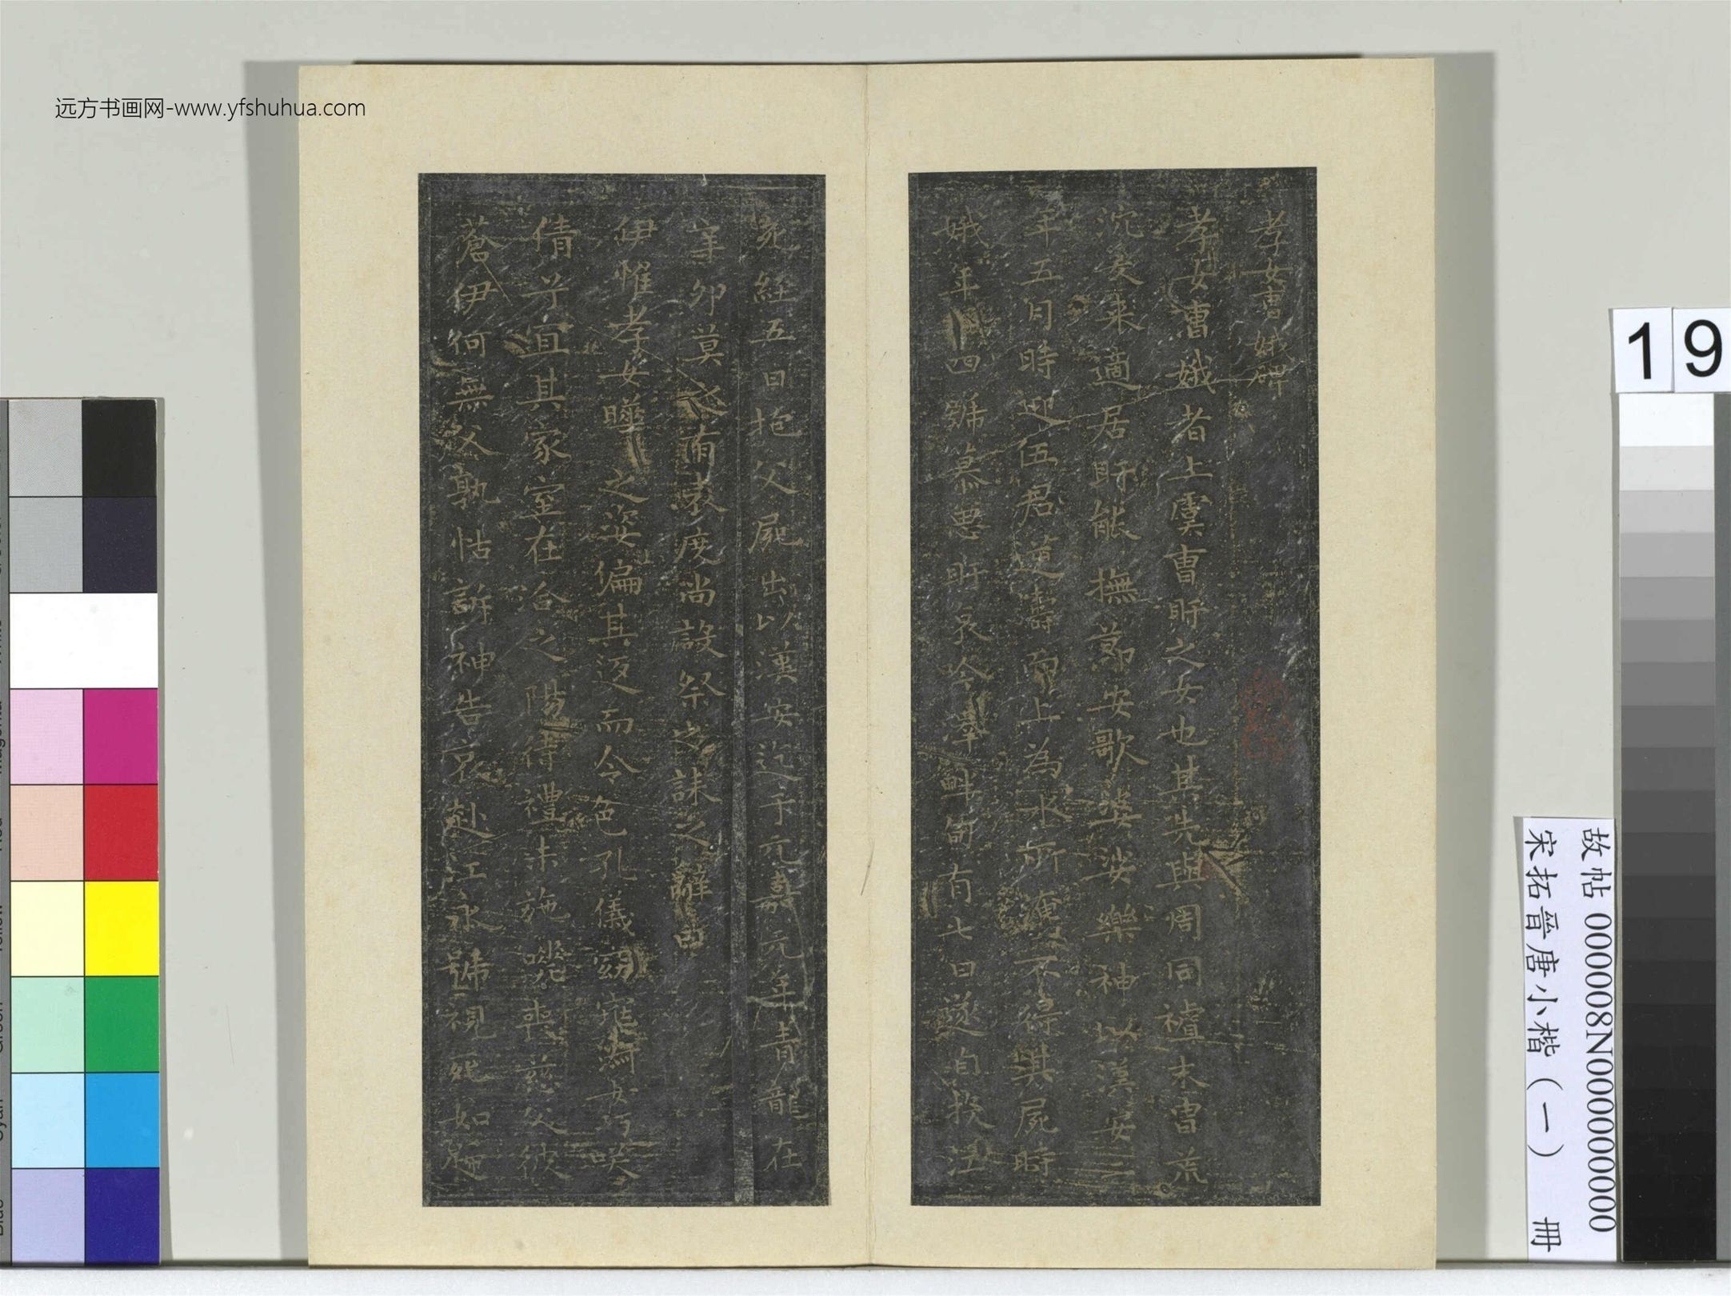 远方书画网-www.yfshuhua.com
孝女曹娥碑
孝女曹娥者上虞曹盱之女也其先與周同祖末胄荒
沉爰来適居盱能撫節安歌婆娑樂神以漢安二
年五月時迎伍君逆濤而上為水所淹不得其屍時
娥年十四號慕思盱哀吟澤畔旬有七日遂自投江
死經五日抱父屍出以漢安迄于元嘉元年青龍在
辛卯莫之有表度尚設祭之誄之辭曰
伊惟孝女曄曄之姿偏其返而令色孔儀窈窕淑女巧咲
倩兮宜其家室在洽之陽待禮未施嗟喪慈父彼
蒼伊何無父孰怙訴神告哀赴江永號視死如歸
19
故帖 000008N000000000
宋拓晉唐小楷(一) 冊